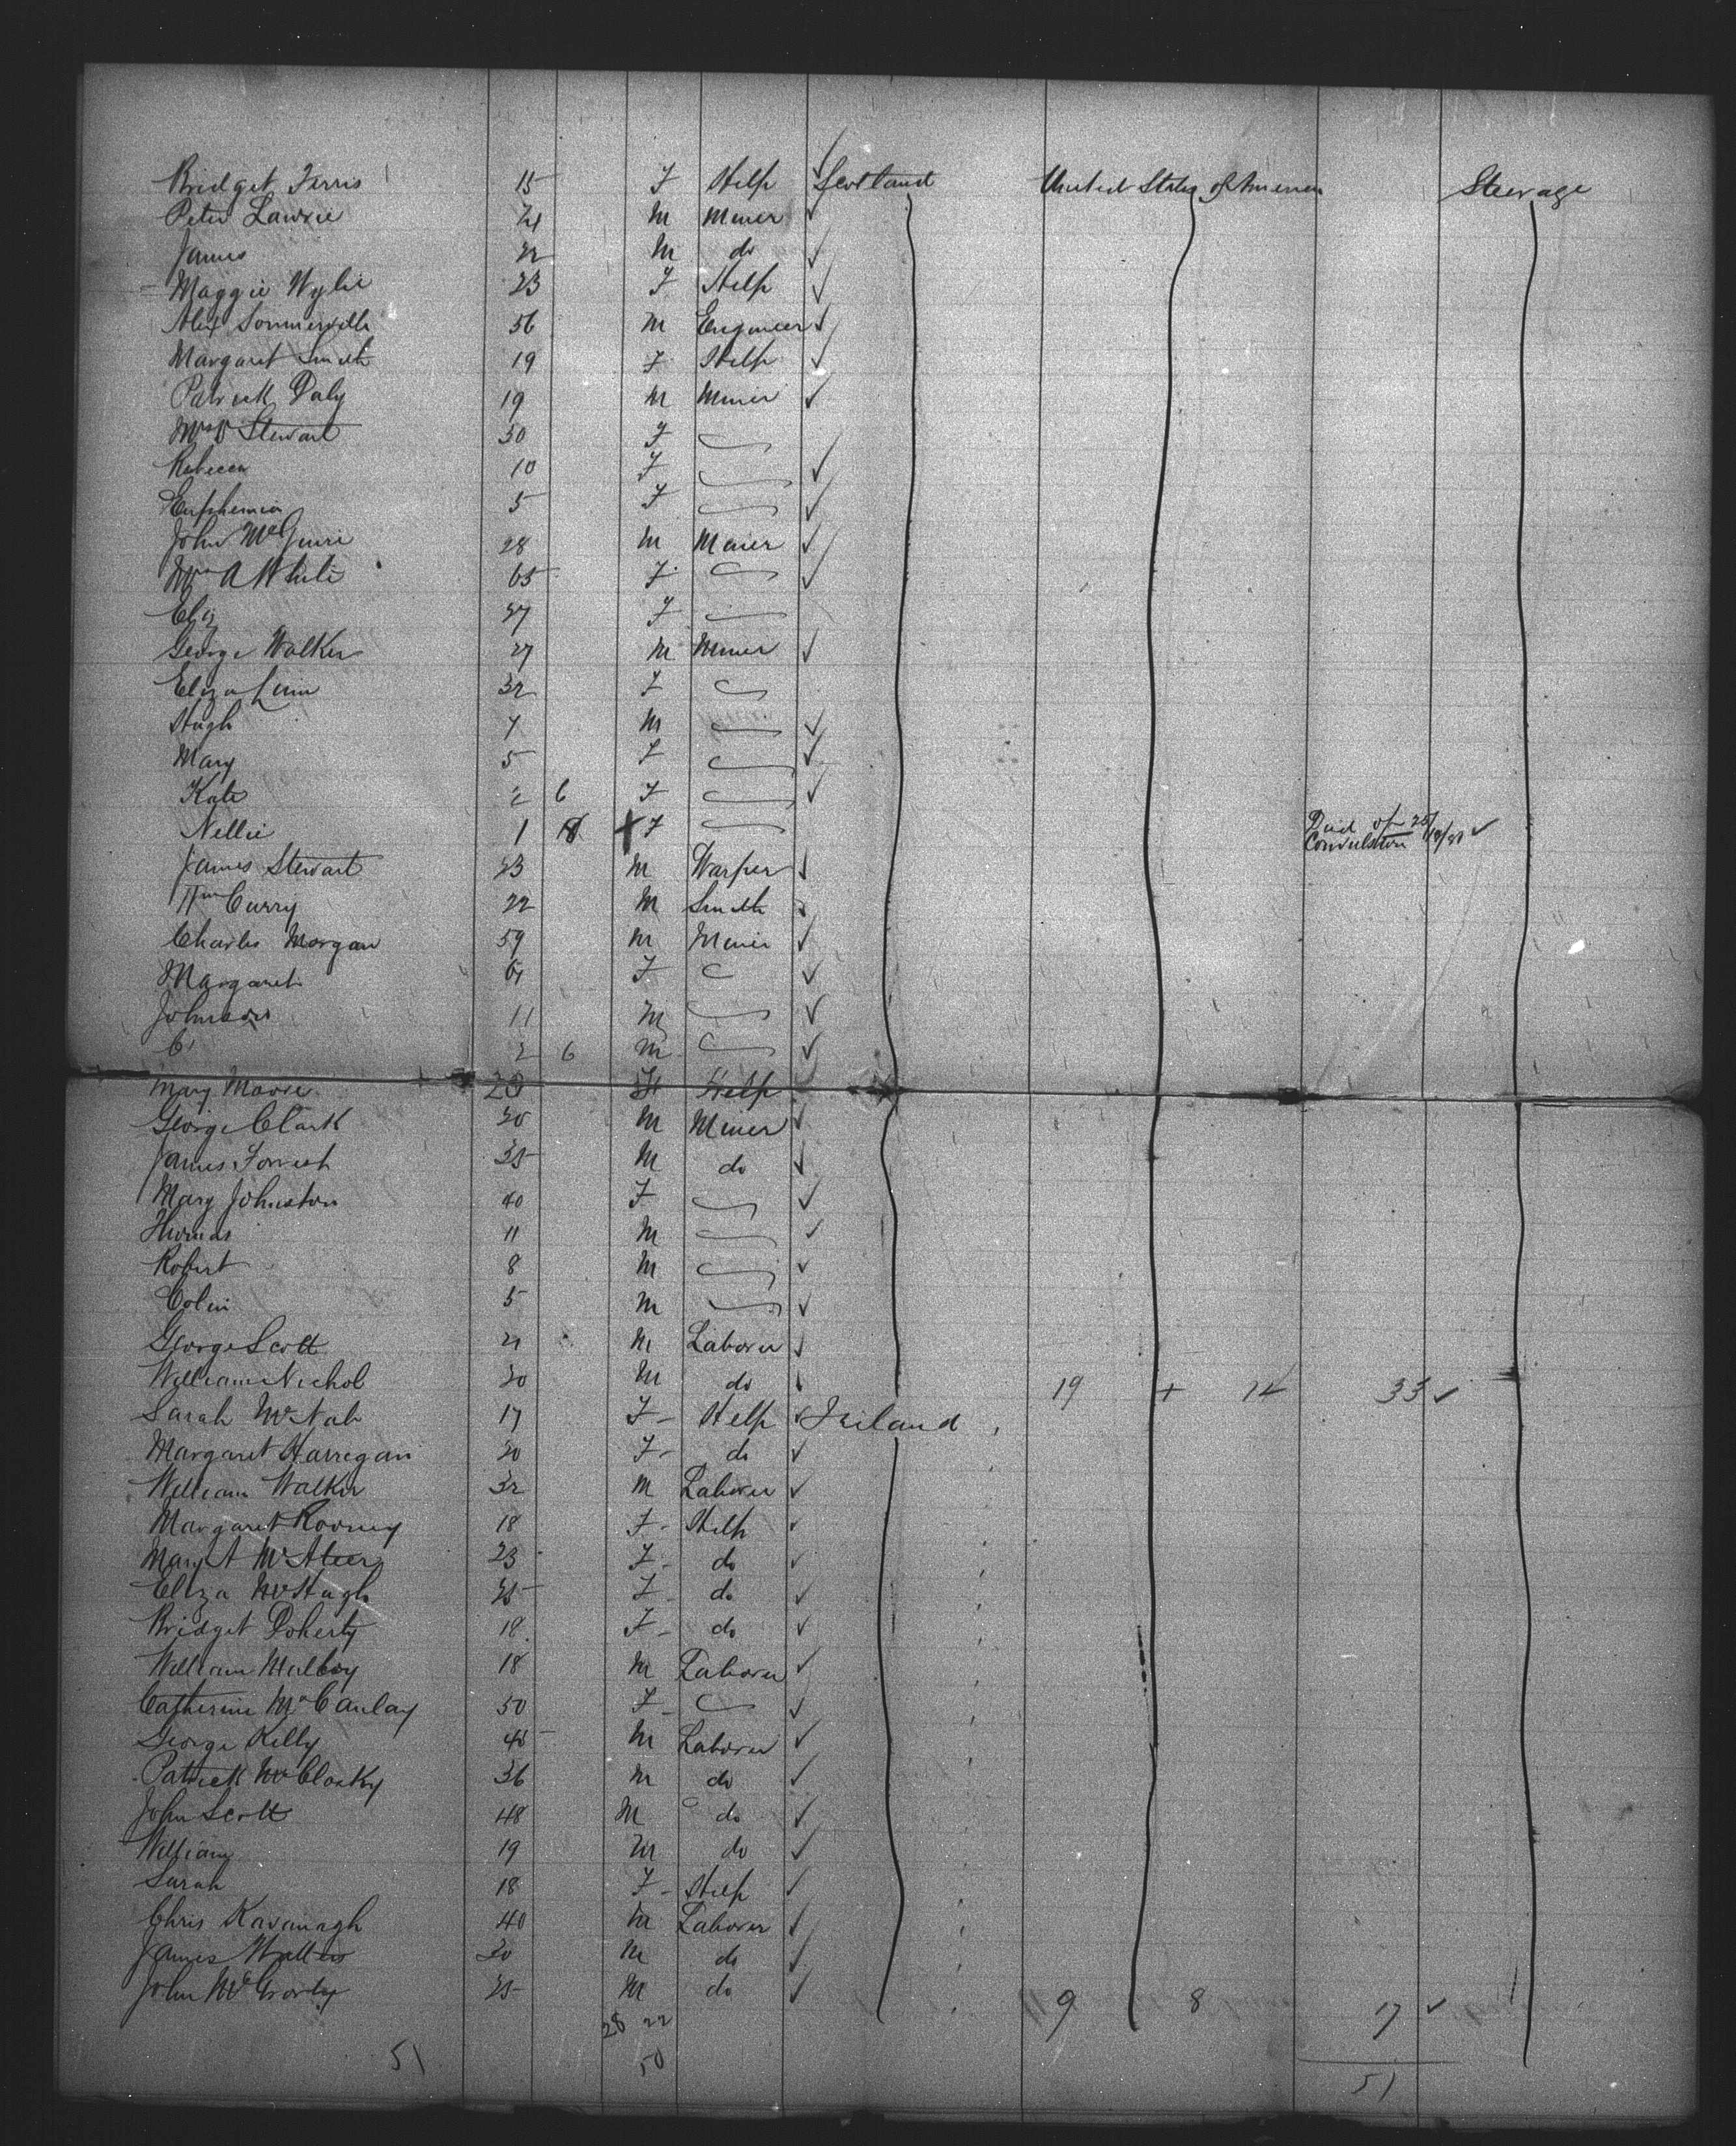 Bridget Ferris 15 F Help Scotland United States of America Steerage
Peter Lawrie 24 M Miner
James 22 M do
Maggie Wylie 23 F Help
Alex Sommerville 56 M Engineer
Margaret Smith 19 F Help
Patrick Daly 19 M Miner
Stewart 30 F
Rebecca 10 F
Euphemia 5 F
John McGuire 28 M Miner
Mrs A White 65 F
Eliz 37 F
George Walker 27 M Miner
Eliza 32 F
Hugh 7 M
Mary 5 F
Kate 2 6 F
Nellie 1 F Died of 25/10/81
Convulsion
James Stewart 23 M Warper
Wm Curry 22 M Smith
Charles Morgan 59 M Miner
Margaret F
Johnson 11 M
C 2 6 M
Mary Moore 23 F Help
George Clark 30 M Miner
James Forrest 35 M do
Mary Johnston 40 F
Thomas 11 M
Robert 8 M
Colin 5 M
George Scott 21 M Laborer
William Nichol 20 M do 19 + 14 33
Sarah McNab 17 F Help Ireland
Margaret Harregan 20 F do
William Walker 32 M Laborer
Margaret Rooney 18 F Help
Mary A McAteer 23 F do
Eliza McHugh 25 F do
Bridget Doherty 18 F do
William Mulboy 18 M Laborer
Catherine McCaulay 50 F
George Kelly 45 M Laborer
Patrick McClosky 36 M do
John Scott 48 M do
William 19 M do
Sarah 18 F Help
Chris Kavanagh 40 M Laborer
James Walters 30 M do
John McGrorty 25 M do 9 8 17
28 22
51 50 51